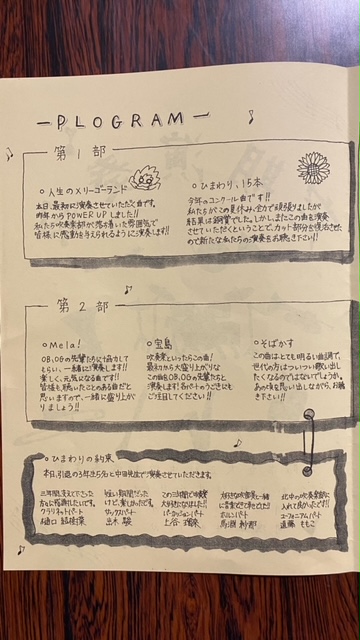 ーPLOGRAMー
第1部
○人生のメリーゴーランド
本日、最初に演奏させていただく曲です。
昨年からPOWER UPしました!!
私たち吹奏楽部が落ち着いた雰囲気で
皆様に感動を与えられるように演奏します!!
○ひまわり、15本
今年のコンクール曲です!!
私たちがこの夏休み、全力で頑張りましたが
結果は銅賞でした。しかし、またこの曲を演奏
させていただくということで、カット部分を復活させた
ので新たな私たちの演奏をお聴き下さい!!
第2部
○Mela!
OB、OGの先輩たちに協力して
もらい、一緒に演奏します!!
楽しく、元気になる曲です!!
皆様も聴いたことのある曲だと
思いますので、一緒に盛り上が
りましょう!!
○宝島
吹奏楽といったらこの曲!
最初から大盛り上がりな
この曲をOB、OGの先輩たちと
演奏します!各パートのうごきにも
ご注目してください!!
○そばかす
この曲は、とても明るい曲調で、
世代の方はついつい歌い出し
たくなるのではないでしょうか。
あの頃を思い出しながら、お聴
き下さい!!
○ひまわりの約束
本日、引退の3年生5名と中田先生で演奏させていただきます。
三年間支えて下さった
方々に感謝したいです。
クラリネットパート
樋口
短い期間だった
けど、楽しかったです。
サックスパート
出木 駿
この三年間で吹奏楽
大好きになれました!!
パーカッションパート
上谷 瑠來
大好きな吹奏楽と一緒
に音楽できて幸せでした!!
ホルンパート
馬渕
北中の吹奏楽部に
入れて良かったです!!
ユーフォニアムパート
遠藤 ももこ